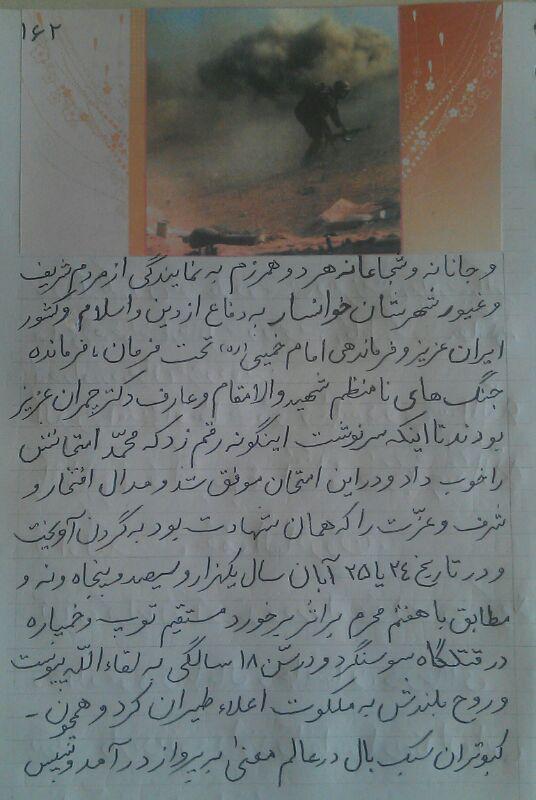 ۱۶۲
و جانانه و شجاعانه هر دو همرزم به نمایندگی از مردم شریف
و غیور شهرستان خوانسار به دفاع از دین و اسلام و کشور
ایران عزیز و فرماندهی امام خمینی (ره) تحت فرمان، فرمانده
جنگ های نامنظم شهید والامقام و عارف دکتر چمران عزیز
بودند تا اینکه سرنوشت اینگونه رقم زد که محمّد امتحانش
را خوب داد و در این امتحان موفق شد و مدال افتخار و
شرف و عزّت را که همان شهادت بود به گردن آویخت
و در تاریخ ۲۴ یا ۲۵ آبان سال یکهزار و سیصد و پنجاه و نه و
مطابق با هفتم محرم بر اثر برخورد مستقیم توپ و خمپاره
در قتلگاه سوسنگرد و در سنّ ۱۸ سالگی به لقاء اللّه پیوست
و روح بلندش به ملکوت اعلاء طیران کرد و همچون -
کبوتران سبک بال در عالم معنیٰ به پرواز در آمد و سپس